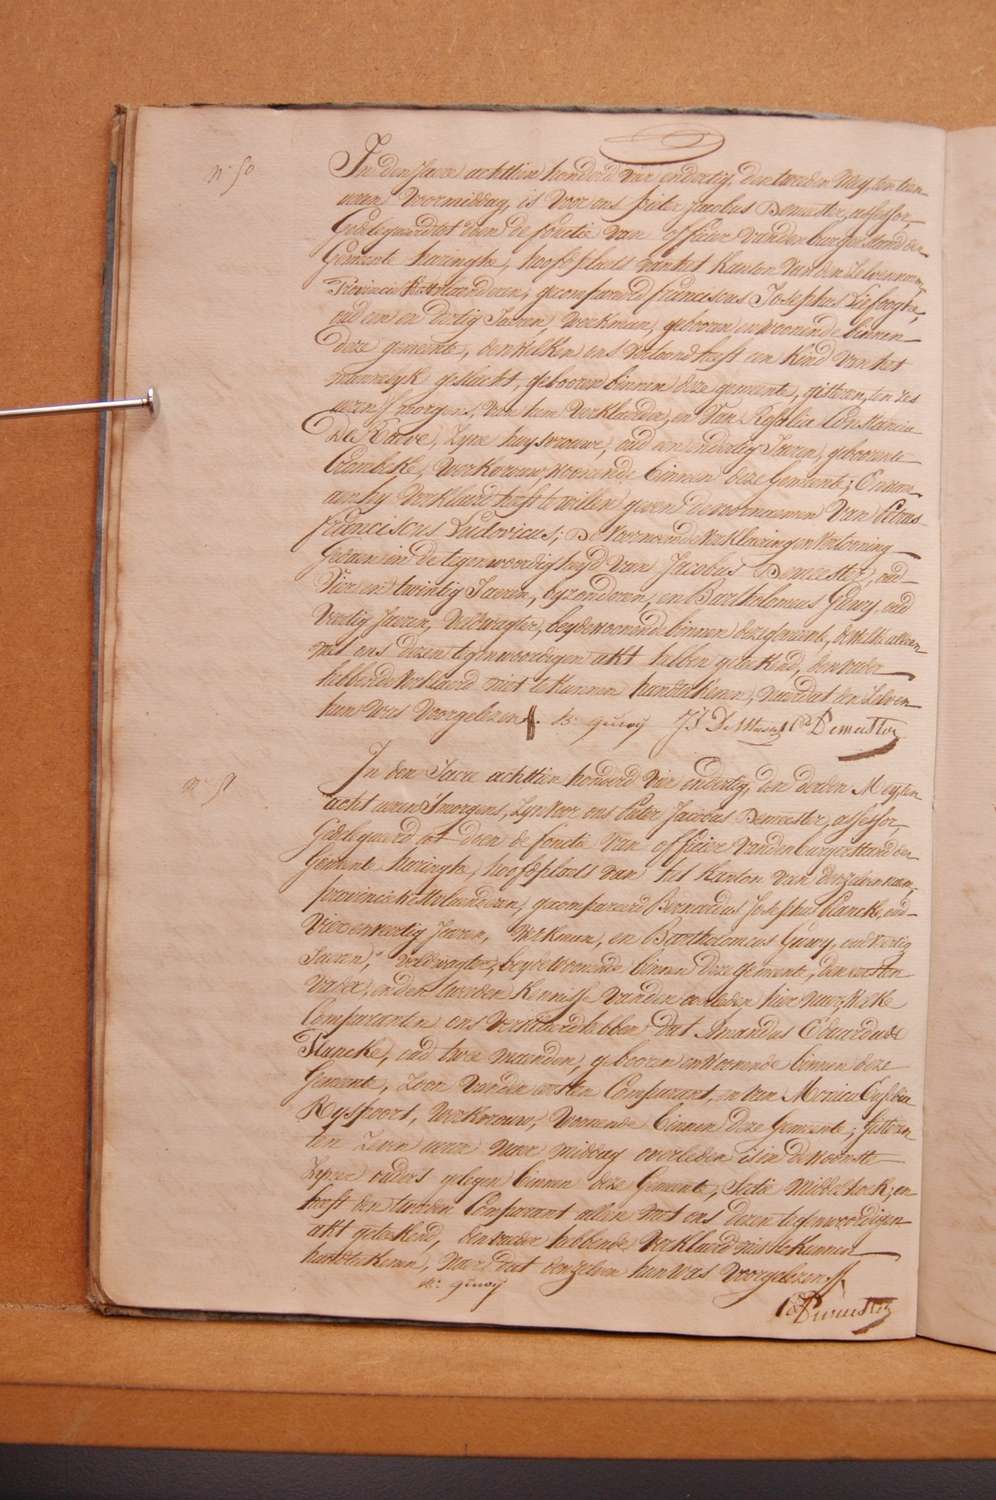 N° 50
In den Jaere achttien honderd een en dertig, den tweeden Mey, ten tien
uren voormiddag, is voor ons Pieter Jacobus Demeester, assessor,
Gedelegueerd tot doen de fonctie van officier van den burgerstand der
Gemeente haringhe, hoofdplaats van het Kanton van den zelven naem,
Provincie Westvlaenderen, gecompareerd Franciscus Josephus Liefooghe,
oud een en dertig Jaeren, werkman, gebooren en woonende binnen
deze gemeente, denwelken ons vertoond heeft een kind van het
mannelyk geslacht, gebooren binnen deze gemeente, gisteren, ten zes
uren 's morgens, van hem verklaerder, en van Rosalia Constancia
De Raeve, zyne huysvrouwe, oud een en dertig Jaeren, geboortig
Crombeke, werkvrouw, woonende binnen deze Gemeente; En aen
aen hy verklaerd heeft te willen geven de voornaemen van Petrus
Franciscus Ludovicus; De voornoemde verklaering en vertooning
Gedaen in de tegenwoordigheyd van Jacobus Demeester, oud
Vier en twintig Jaeren, byzonderen, en Bartholomeus Guwy, oud
Veertig Jaeren, veldwagter, beyde woonende binnen deze gemeente, dewelke alleen
met ons dezen tegenwoordigen akt hebben geteekend, den vader
hebbende verklaerd niet te kunnen handteekenen, naer dat den zelven
hun was voorgelezen. B: guwy J: Demeester P J Demeester
N° 51
In den Jaere achttien honderd een en dertig, den derden Mey, ten
acht uren 's morgens, zyn voor ons Pieter Jacobus Demeester, assessor,
Gedelegueerd tot doen de fonctie van officier van den burgerstand der
Gemeente haringhe, hoofdplaats van het Kanton van den zelven naem,
provincie Westvlaenderen, gecompareerd Bernardus Josephus Plancke, oud
Vier en veertig Jaeren, werkman, en Bartholomeus Guwy, oud veertig
Jaeren, veldwagter, beyde woonende binnen deze gemeente, den eersten
vader, en den tweeden kennisse van den overleden hier naer, welke
Comparanten ons verklaerd hebben dat Amandus Eduardus
Plancke, oud twee maenden, gebooren en woonende binnen deze
Gemeente, zoon van den eersten Comparant, en van Maria Eusebia
Ryspoort, werkvrouw, woonende binnen deze Gemeente; gisteren
ten zeven uren naer middag overleden is in de woonste
zyner ouders gelegen binnen deze Gemeente, Sectie Middelhoek; en
heeft den tweeden Comparant alleen met ons dezen tegenwoordigen
akt geteekend, den vader hebbende verklaerd niet te kunnen
handteekenen, naer dat den zelven hun was voorgelezen.
B: guwy
P J Demeester